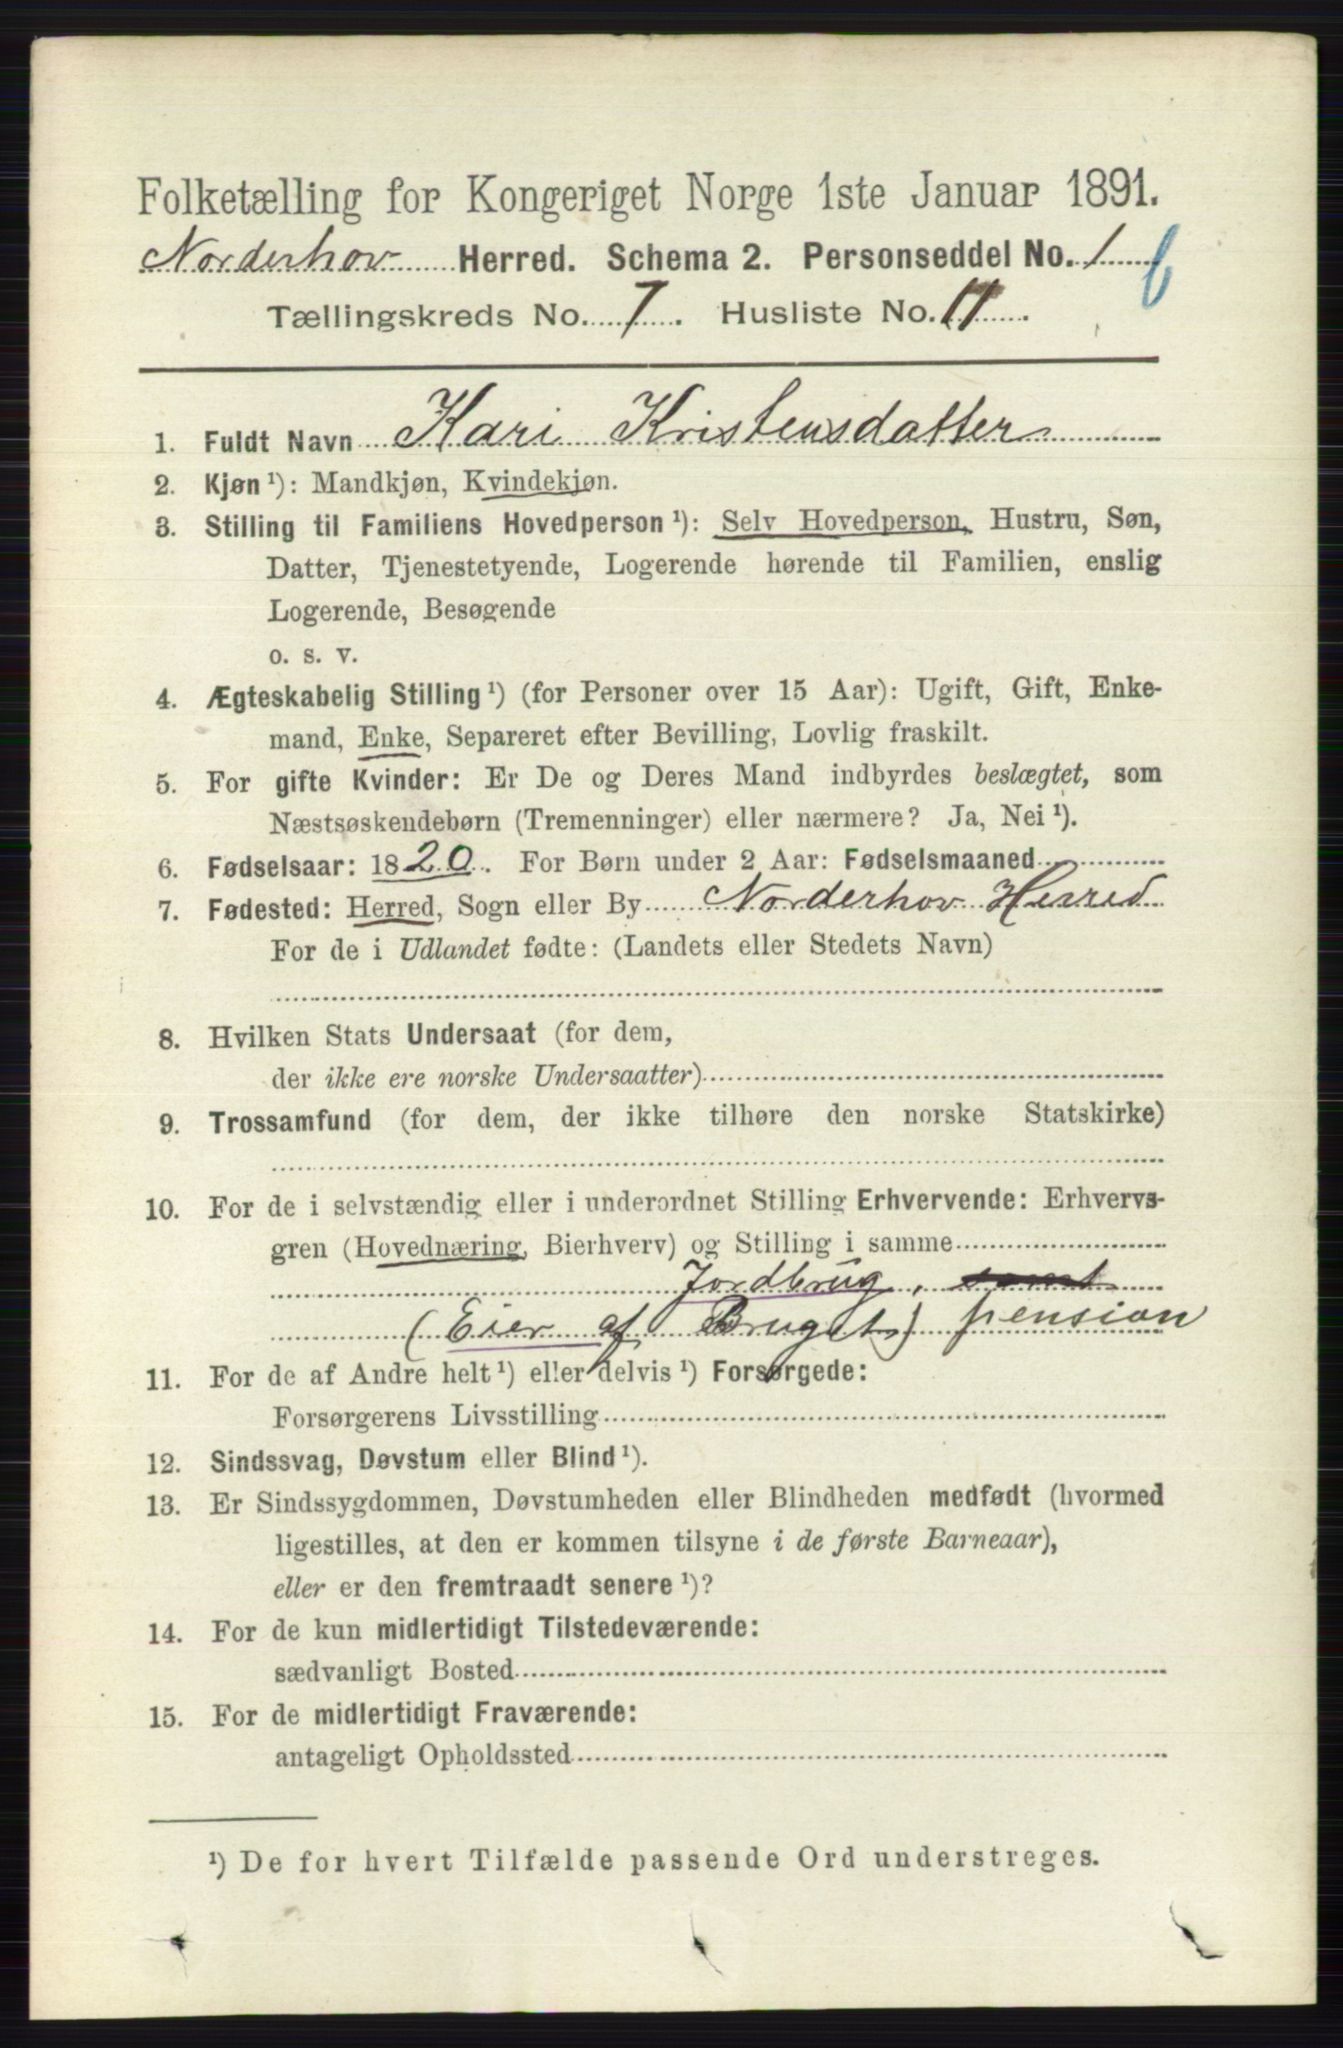 Folketælling for Kongeriget Norge 1ste Januar 1891.
Norderhov Herred. Schema 2. Personseddel No. 1
Tællingskreds No. 7. Husliste No. 11.
1. Fuldt Navn Kari Kristensdatter
2. Kjøn ¹): Mandkjøn, Kvindekjøn.
3. Stilling til Familiens Hovedperson ¹): Selv Hovedperson, Hustru, Søn,
Datter, Tjenestetyende, Logerende hørende til Familien, enslig
Logerende, Besøgende
o. s. v.
4. Ægteskabelig Stilling ¹) (for Personer over 15 Aar): Ugift, Gift, Enke-
mand, Enke, Separeret efter Bevilling, Lovlig fraskilt.
5. For gifte Kvinder: Er De og Deres Mand indbyrdes beslægtet, som
Næstsøskendebørn (Tremenninger) eller nærmere? Ja, Nei ¹).
6. Fødselsaar: 1820. For Børn under 2 Aar: Fødselsmaaned
7. Fødested: Herred, Sogn eller By Norderhov Herred
For de i Udlandet fødte: (Landets eller Stedets Navn)
8. Hvilken Stats Undersaat (for dem,
der ikke ere norske Undersaatter)
9. Trossamfund (for dem, der ikke tilhøre den norske Statskirke)
10. For de i selvstændig eller i underordnet Stilling Erhvervende: Erhvervs-
gren (Hovednæring, Bierhverv) og Stilling i samme
Jordbrug, samt
(Eier af Bruget) pension
11. For de af Andre helt ¹) eller delvis ¹) Forsørgede:
Forsørgerens Livsstilling
12. Sindssvag, Døvstum eller Blind ¹).
13. Er Sindssygdommen, Døvstumheden eller Blindheden medfødt (hvormed
ligestilles, at den er kommen tilsyne i de første Barneaar),
eller er den fremtraadt senere ¹)?
14. For de kun midlertidigt Tilstedeværende:
sædvanligt Bosted
15. For de midlertidigt Fraværende:
antageligt Opholdssted
¹) De for hvert Tilfælde passende Ord understreges.